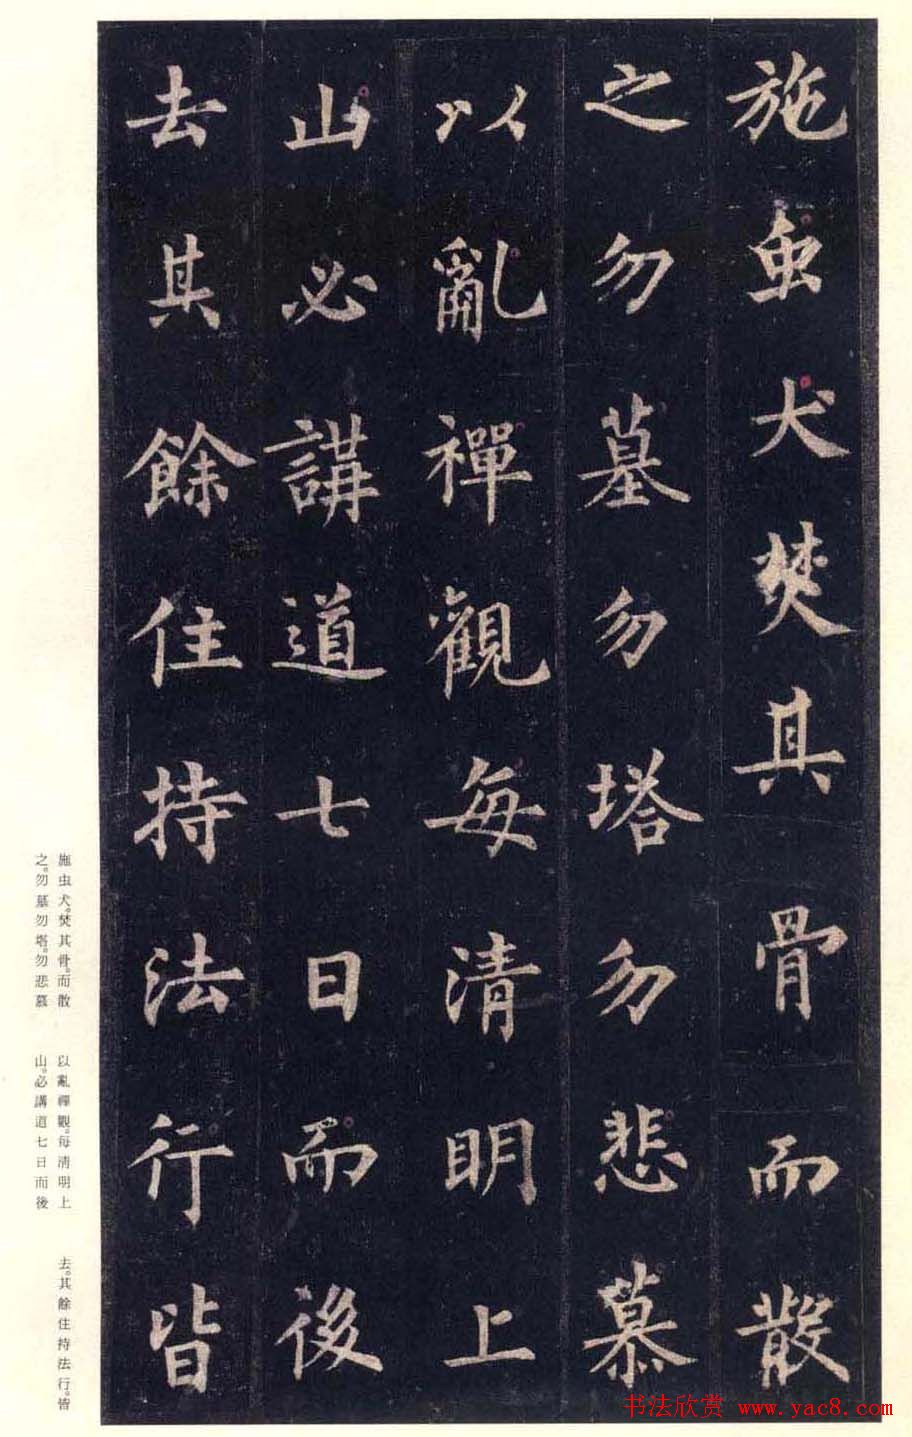 施虫犬焚其骨而散
之勿墓勿塔勿悲慕
以亂禪觀每清明上
山必講道七日而後
去其餘住持法行皆
施虫犬。焚其骨。而散
之。勿墓勿塔。勿悲慕
以亂禪觀。每清明上
山。必講道七日而後
去。其餘住持法行。皆
书法欣赏 www.yac8.com